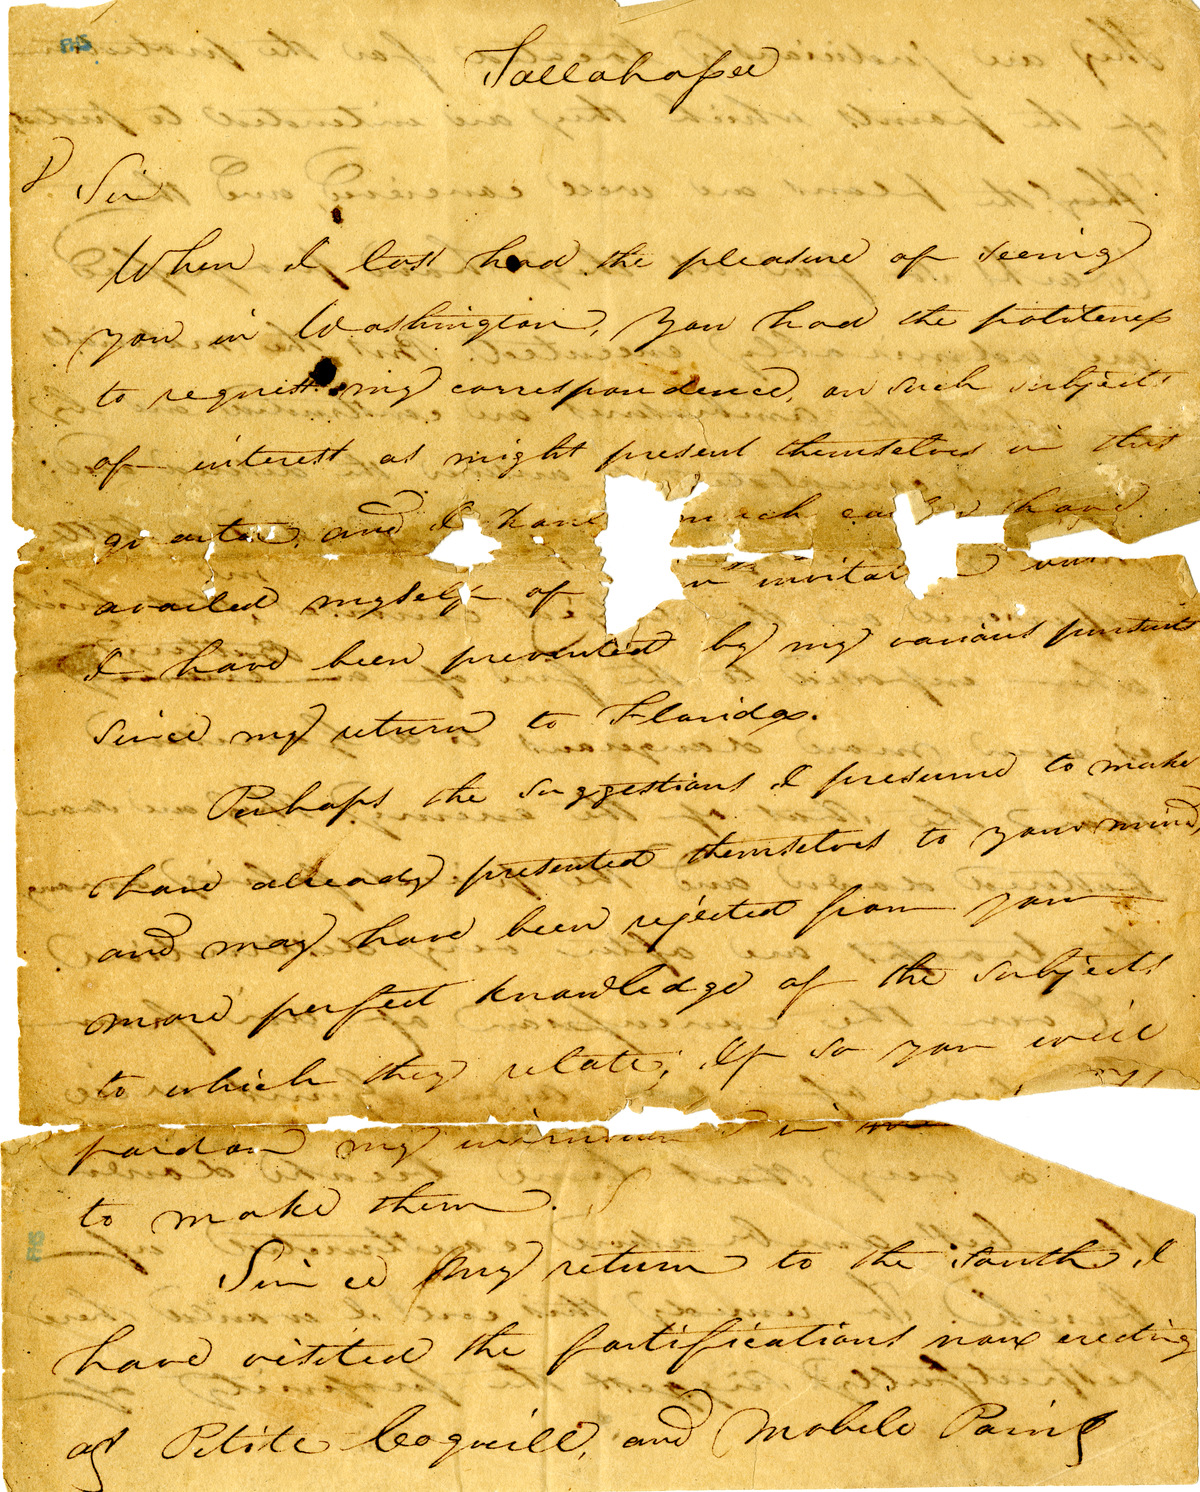 Tallahassee
Sir
When I last had the pleasure of seeing
you in Washington, you had the politeness
to request my correspondence, on such subjects
of interest as might present themselves in this
quarter, and I have much earlier have
availed myself of invitation
I have been prevented by my various pursuits
since my return to Florida.
Perhaps the suggestions I presume to make
have already presented themselves to your mind,
and may have been rejected from your
more perfect knowledge of the subjects
to which they relate; If so you will
pardon my in
to make them.
Since my return to the South I
have visited the fortifications now erecting
at Petite Coquill, and Mobile Point